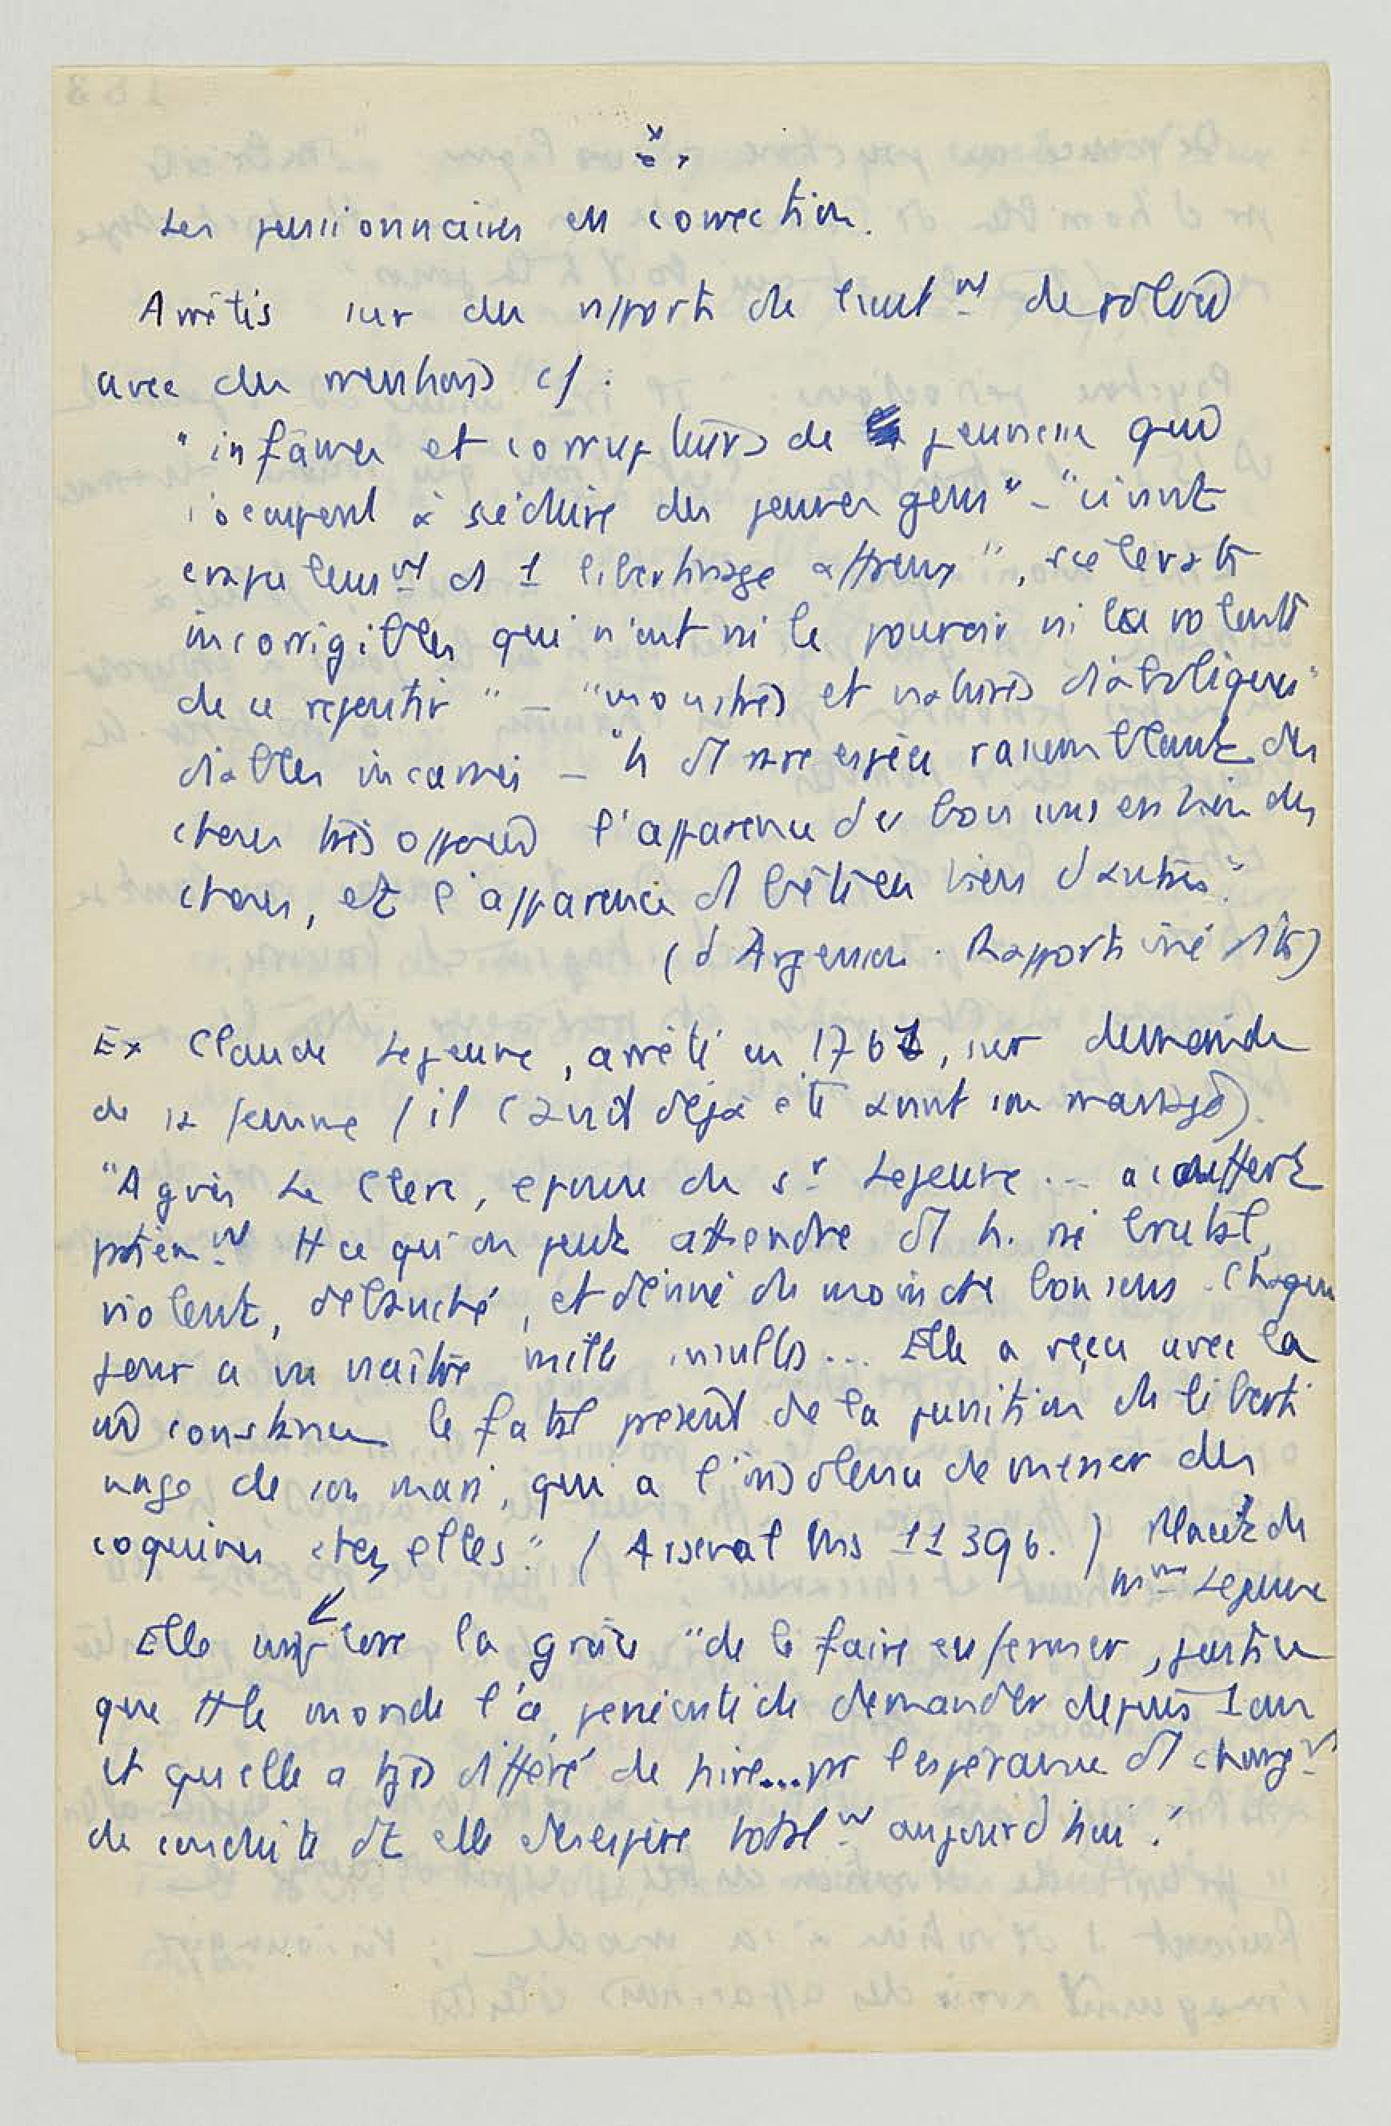 Les pensionnaires en correction.
Arrêtés sur des rapports de lieutnt de police
avec des mentions cf.
"infâmes et corrupteurs de jeunesse qui
s'occupent à séduire des jeunes gens" - "vivant
crapuleusnt ds 1 libertinage affreux", scélérats
incorrigibles qui n'ont ni le pouvoir ni la volonté
de se repentir" - "monstres et natures diaboliques"
diables incarnés - "h d'une espèce rassemblant des
choses très opposées l'apparence de bon sens en bien des
choses, et l'apparence d bêtise en bien d'autres."
(d'Argenson. Rapports inédits)
Ex Claude Lejeune, arrêté en 1761, sur demande
de sa femme (il l'avait déjà été avant son mariage).
"Agnès Le Clerc, epouse du sr Lejeune ... a souffert
patiemnt tt ce qu'on peut attendre d'1 h. né brutal,
violent, débauché, et dénué du moindre bon sens. Chaque
jour a vu naître mille insultes... Elle a reçu avec la
constance le fatal présent de la punition du liberti
nage de son mari, qui a l'insolence de mener des
coquines chez elles." (Arsenal Ms 11396.) Placet de
Mme Lejeune
Elle implore la grâce "de le faire enfermer, justice
que tt le monde l'a persécuté de demander depuis 1 an
et quelle a tjrs différé de faire... pr l'espérance d'1 changnt
de conduite dt elle désespère totalnt aujourd'hui."